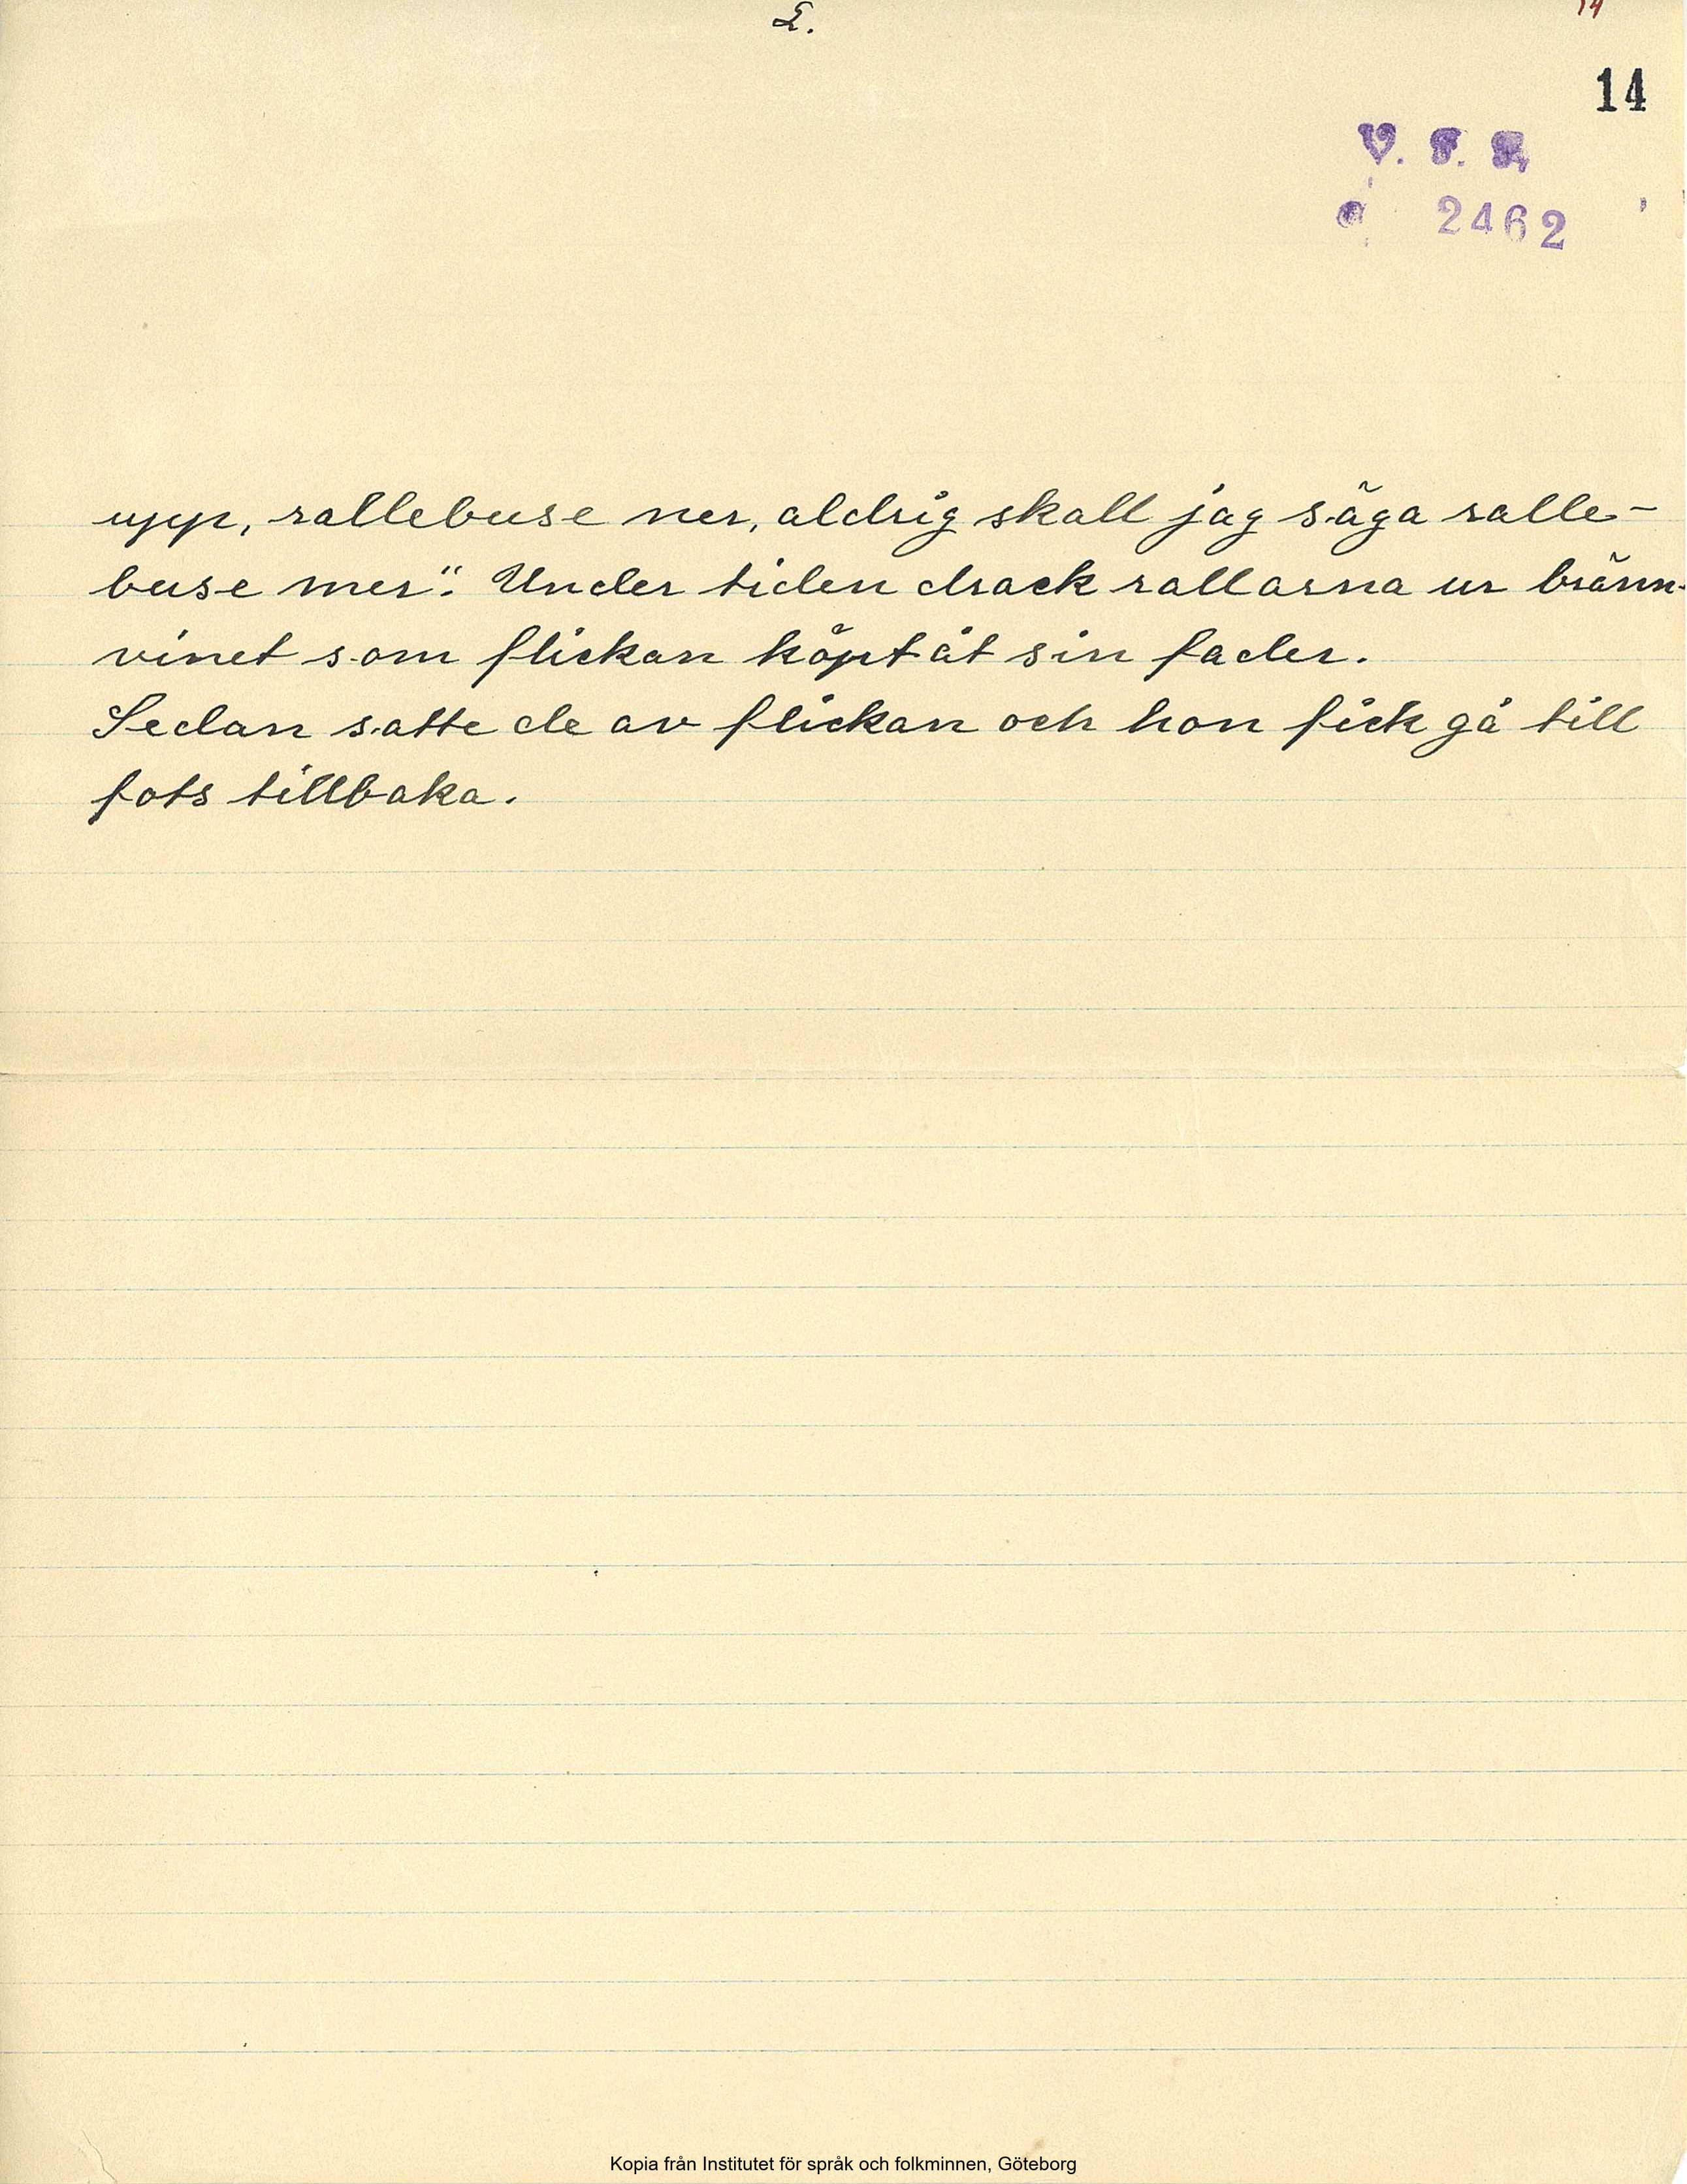 2.
14
14
V. F. F.
2462
upp, rallebuse ner, aldrig skall jag säga ralle-
buse mer". Under tiden drack rallarna ur bränn-
vinet som flickan köpt åt sin fader.
Sedan satte de av flickan och hon fick gå till
fots tillbaka.
Kopia från Institutet för språk och folkminnen, Göteborg